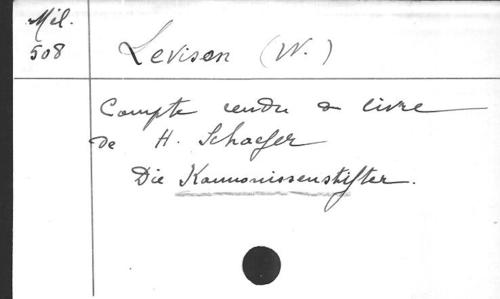 Mél.
508
Levison (W.)
Compte rendu du livre
de H. Schaefer
Die Kanonissenstifter.